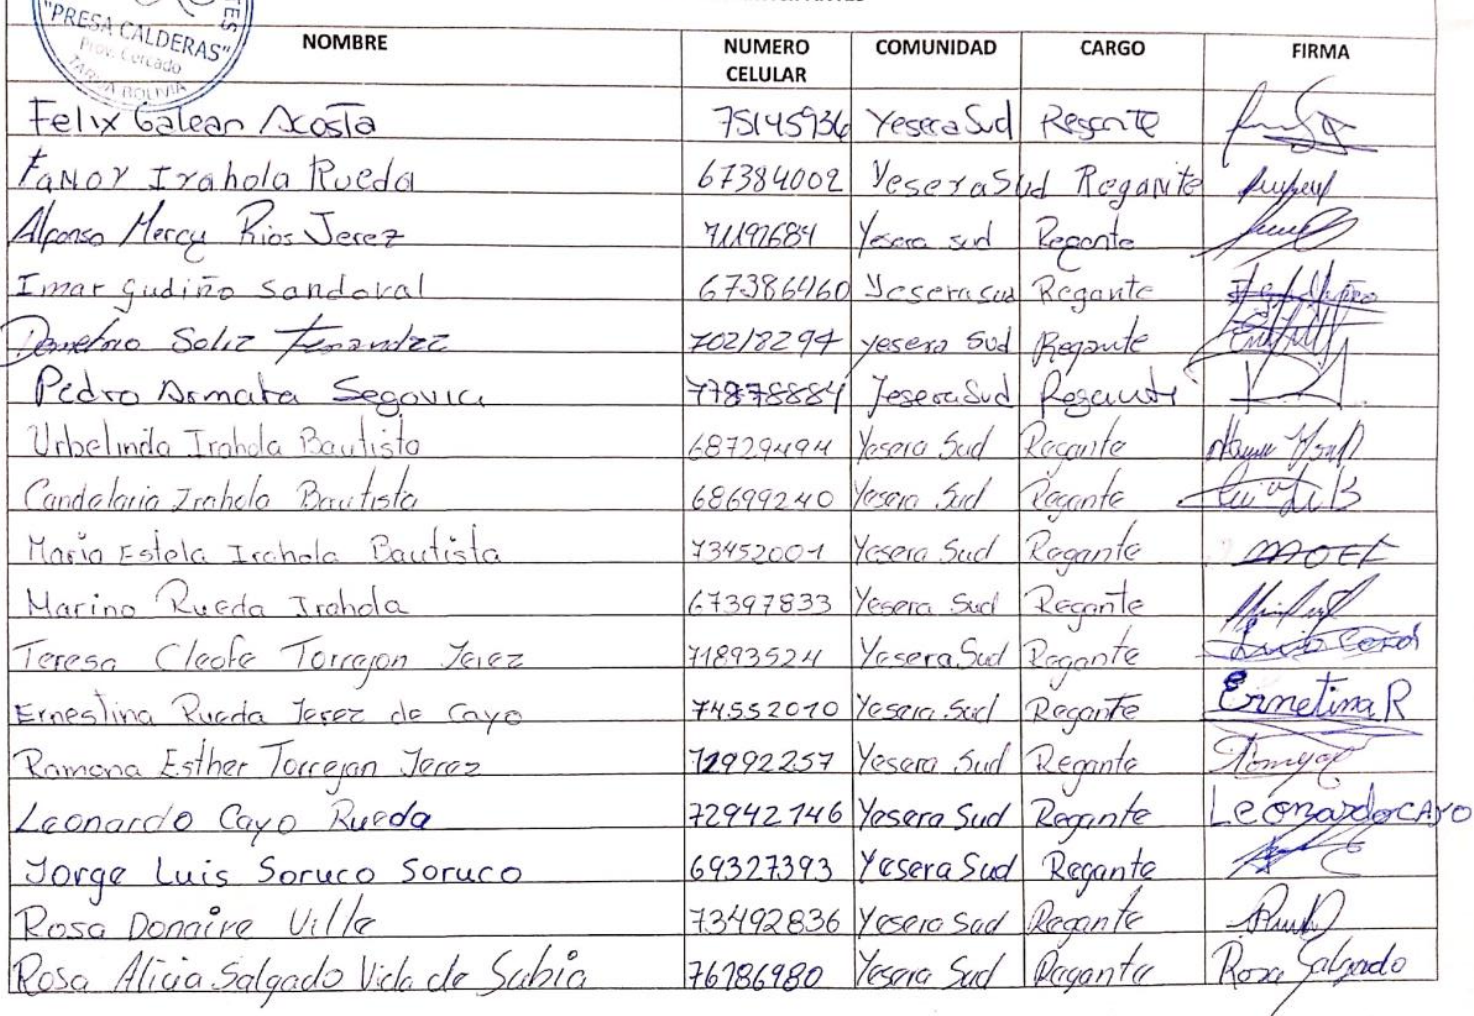 "PRESA CALDERAS"
Prov. Cercado
TARIJA BOLIVIA
NOMBRE NUMERO CELULAR COMUNIDAD CARGO FIRMA
Felix Galean Acosta 75145936 Yesera Sud Regante
Fanor Irahola Rueda 67384002 Yesera Sud Regante
Alfonso Mercy Rios Jerez 71197684 Yesera sud Regante
Imar Gudiño Sandoval 67386460 Yesera sud Regante
Demetrio Soliz Fernandez 70218294 yesera Sud Regante
Pedro Armata Segovia 77878884 Yesera Sud Regante
Urbelinda Irahola Bautista 68729494 Yesera Sud Regante
Candelaria Irahola Bautista 68699240 Yesera Sud Regante
Maria Estela Irahola Bautista 73452001 Yesera Sud Regante
Marino Rueda Irahola 67397833 Yesera Sud Regante
Teresa Cleofe Torrejon Jerez 71893524 Yesera Sud Regante
Ernestina Rueda Jerez de Cayo 74552010 Yesera Sud Regante Ernetina R
Ramona Esther Torrejon Jerez 72992257 Yesera Sud Regante
Leonardo Cayo Rueda 72942146 Yesera Sud Regante Leonardo CAYO
Jorge Luis Soruco Soruco 69327393 Yesera Sud Regante
Rosa Donaire Ville 73492836 Yesera Sud Regante
Rosa Alicia Salgado Vida de Subia 76186980 Yesera Sud Regante Rosa Salgado